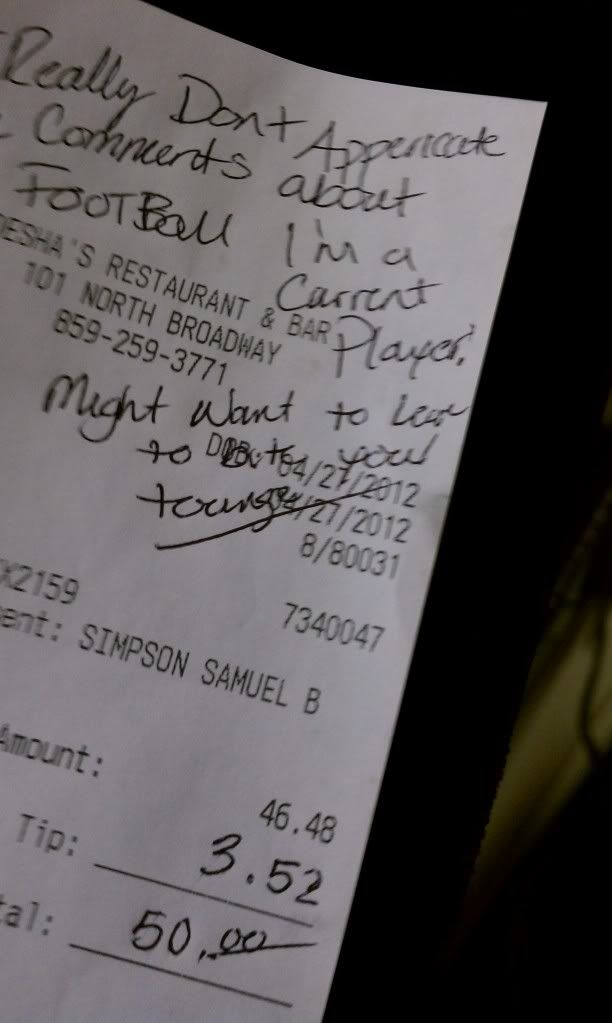 Really Dont Appericate
Comments about
FootBall I'm a
Current
Player.
DESHA'S RESTAURANT & BAR
101 NORTH BROADWAY
859-259-3771
Might want to
to your
04/27/2012
tounge /27/2012
8/80031
X2159
7340047
ent: SIMPSON SAMUEL B
Amount:
46.48
Tip: 3.52
tal: 50.00